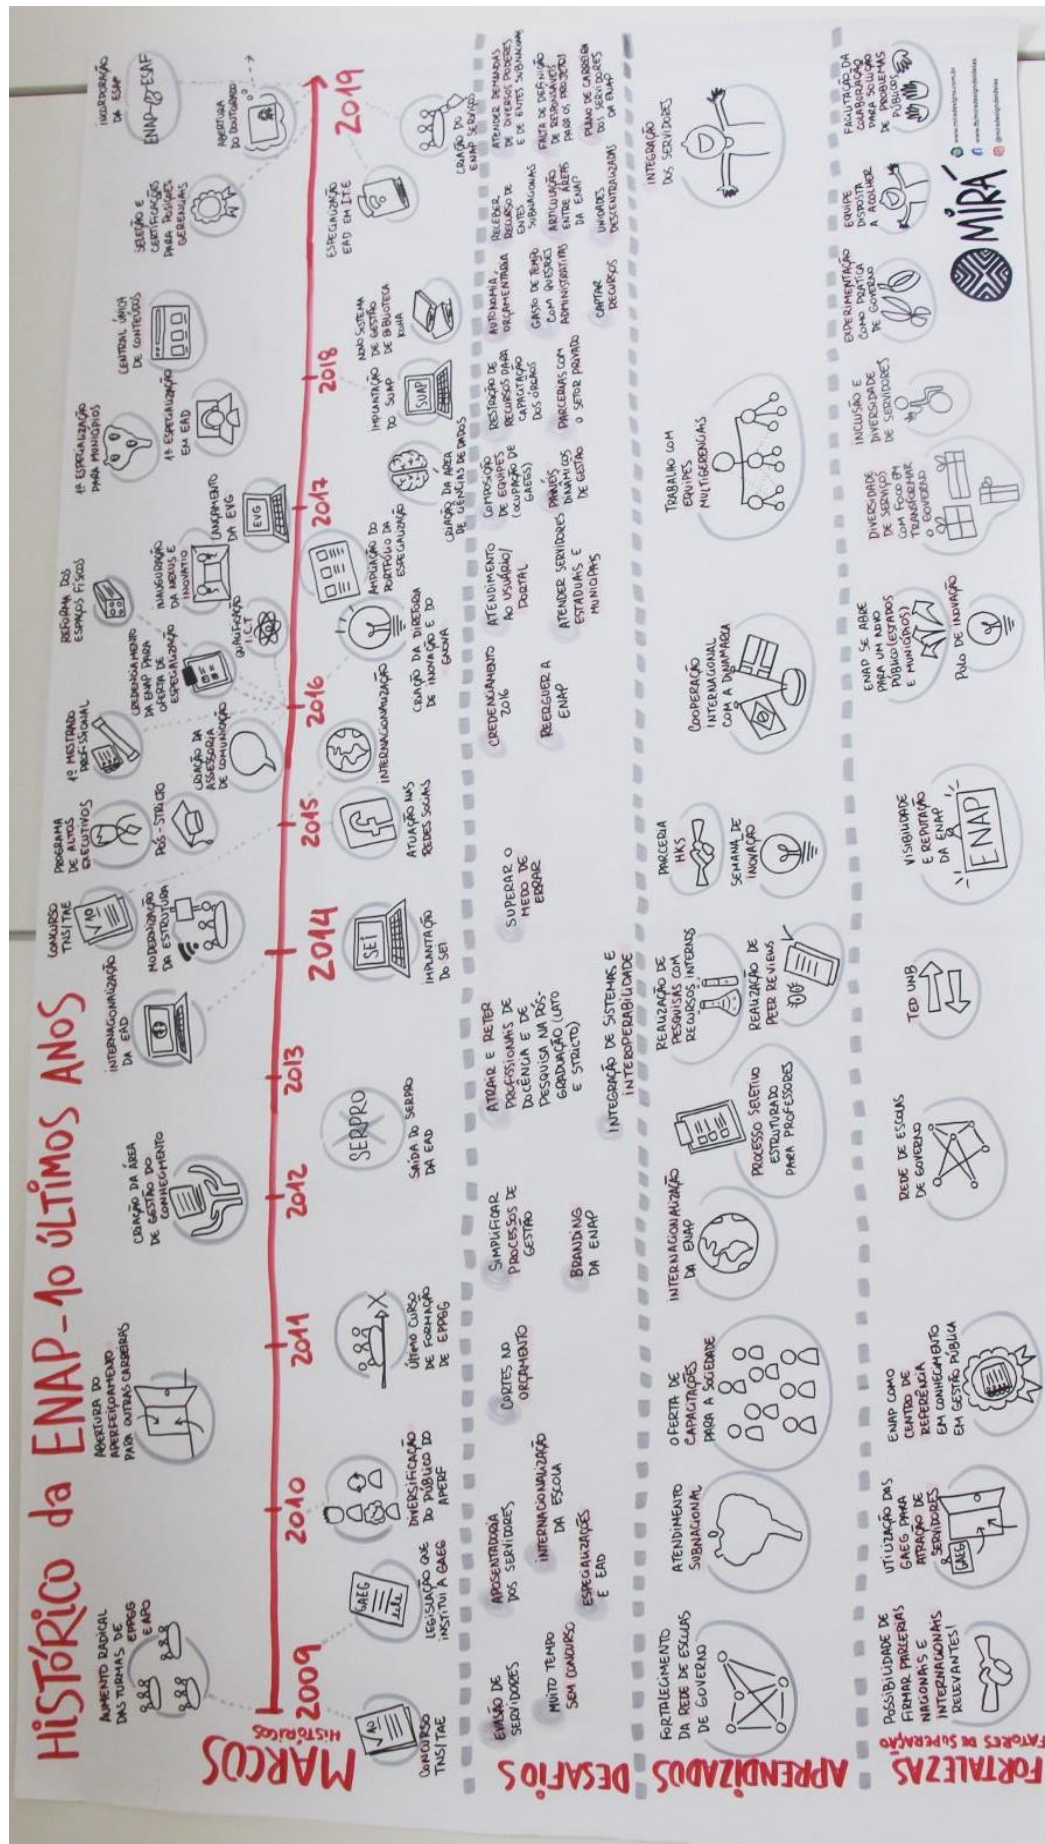 HISTÓRICO da ENAP - 10 ÚLTIMOS ANOS
MARCOS
HISTÓRICOS
AUMENTO RADICAL
DAS TURMAS DE
EPPGG
E APO
ABERTURA DO
APERFEIÇOAMENTO
PARA OUTRAS CARREIRAS
CRIAÇÃO DA ÁREA
DE GESTÃO DO
CONHECIMENTO
INTERNACIONALIZAÇÃO
DA EAD
CONCURSO
TNS/TAE
V10
MODERNIZAÇÃO
DA ESTRUTURA
PROGRAMA
DE ALTOS
EXECUTIVOS
PÓS-STRICTO
1º MESTRADO
PROFISSIONAL
CRIAÇÃO DA
ASSESSORIA
DE COMUNICAÇÃO
CREDENCIAMENTO
DA ENAP PARA
OFERTA DE
ESPECIALIZAÇÃO
QUALIFICAÇÃO
I.C.T
REFORMA DOS
ESPAÇOS FÍSICOS
INAUGURAÇÃO
DA NEXUS E
INOVATIO
LANÇAMENTO
DA EVG
EVG
1ª ESPECIALIZAÇÃO
PARA MUNICÍPIOS
1ª ESPECIALIZAÇÃO
EM EAD
CENTRAL ÚNICA
DE CONTEÚDOS
SELEÇÃO E
CERTIFICAÇÕES
PARA POSIÇÕES
GERENCIAIS
INCORPORAÇÃO
DA ESAF
ENAP ESAF
ABERTURA
DO DOUTORADO
2009
2010
2011
2012
2013
2014
2015
2016
2017
2018
2019
V10
CONCURSO
TNS/TAE
GAEG
LEGISLAÇÃO QUE
INSTITUI A GAEG
DIVERSIFICAÇÃO
DO PÚBLICO DO
APERF
ÚLTIMO CURSO
DE FORMAÇÃO
DE EPPGG
SERPRO
SAÍDA DO SERPRO
DA EAD
SEI
IMPLANTAÇÃO
DO SEI
ATUAÇÃO NAS
REDES SOCIAIS
INTERNACIONALIZAÇÃO
CRIAÇÃO DA DIRETORIA
DE INOVAÇÃO E DO
GNOVA
AMPLIAÇÃO DO
PORTFÓLIO DA
ESPECIALIZAÇÃO
CRIAÇÃO DA ÁREA
DE CIÊNCIAS DE DADOS
IMPLANTAÇÃO
DO SUAP
SUAP
NOVO SISTEMA
DE GESTÃO
DE BIBLIOTECA
KOHA
ESPECIALIZAÇÃO
EAD EM ITE
CRIAÇÃO DO
ENAP SERVIÇOS
DESAFIOS
EVASÃO DE
SERVIDORES
MUITO TEMPO
SEM CONCURSO
APOSENTADORIA
DOS SERVIDORES
INTERNACIONALIZAÇÃO
DA ESCOLA
ESPECIALIZAÇÕES
E EAD
CORTES NO
ORÇAMENTO
SIMPLIFICAR
PROCESSOS DE
GESTÃO
BRANDING
DA ENAP
ATRAIR E RETER
PROFISSIONAIS DE
DOCÊNCIA E DE
PESQUISA NA PÓS-
GRADUAÇÃO (LATO
E STRICTO)
INTEGRAÇÃO DE SISTEMAS E
INTEROPERABILIDADE
SUPERAR O
MEDO DE
ERRAR
CREDENCIAMENTO
2016
REERGUER A
ENAP
ATENDIMENTO
AO USUÁRIO/
PORTAL
ATENDER SERVIDORES
ESTADUAIS E
MUNICIPAIS
COMPOSIÇÃO
DE EQUIPES
(OCUPAÇÃO DE
GAEGS)
PAINÉIS
DINÂMICOS
DE GESTÃO
RESTRIÇÃO DE
RECURSOS PARA
CAPACITAÇÃO
DOS ÓRGÃOS
PARCERIAS COM
O SETOR PRIVADO
AUTONOMIA
ORÇAMENTÁRIA
GASTO DE TEMPO
COM QUESTÕES
ADMINISTRATIVAS
CAPTAR
RECURSOS
RECEBER
RECURSO DE
ENTES
SUBNACIONAIS
ARTICULAÇÃO
ENTRE ÁREAS
DA ENAP
UNIDADES
DESCENTRALIZADAS
ATENDER DEMANDAS
DE DIVERSOS PODERES
E DE ENTES SUBNACIONAIS
FALTA DE DEFINIÇÃO
DE RESPONSÁVEIS
PARA OS PROJETOS
PLANO DE CARREIRA
DOS SERVIDORES
DA ENAP
APRENDIZADOS
FORTALECIMENTO
DA REDE DE ESCOLAS
DE GOVERNO
ATENDIMENTO
SUBNACIONAL
OFERTA DE
CAPACITAÇÕES
PARA A SOCIEDADE
INTERNACIONALIZAÇÃO
DA ENAP
PROCESSO SELETIVO
ESTRUTURADO
PARA PROFESSORES
REALIZAÇÃO DE
PESQUISAS COM
RECURSOS INTERNOS
REALIZAÇÃO DE
PEER REVIEWS
PARCERIA
HKS
SEMANA DE
INOVAÇÃO
COOPERAÇÃO
INTERNACIONAL
COM A DINAMARCA
TRABALHO COM
EQUIPES
MULTIGERENCIAIS
INTEGRAÇÃO
DOS SERVIDORES
FORTALEZAS
FATORES DE SUPERAÇÃO
POSSIBILIDADE DE
FIRMAR PARCERIAS
NACIONAIS E
INTERNACIONAIS
RELEVANTES!
UTILIZAÇÃO DAS
GAEG PARA
ATRAÇÃO DE
SERVIDORES
GAEG
ENAP COMO
CENTRO DE
REFERÊNCIA
EM CONHECIMENTO
EM GESTÃO PÚBLICA
REDE DE ESCOLAS
DE GOVERNO
TED UNB
VISIBILIDADE
E REPUTAÇÃO
DA ENAP
ENAP
ENAP SE ABRE
PARA UM NOVO
PÚBLICO (ESTADOS
E MUNICÍPIOS)
POLO DE INOVAÇÃO
DIVERSIDADE
DE SERVIÇOS
COM FOCO EM
TRANSFORMAR
O GOVERNO
INCLUSÃO E
DIVERSIDADE
DE SERVIDORES
EXPERIMENTAÇÃO
COMO PRÁTICA
DE GOVERNO
EQUIPE
DISPOSTA
A ACOLHER
FACILITAÇÃO DA
COLABORAÇÃO
PARA SOLUÇÃO
DE PROBLEMAS
PÚBLICOS
MIRÁ